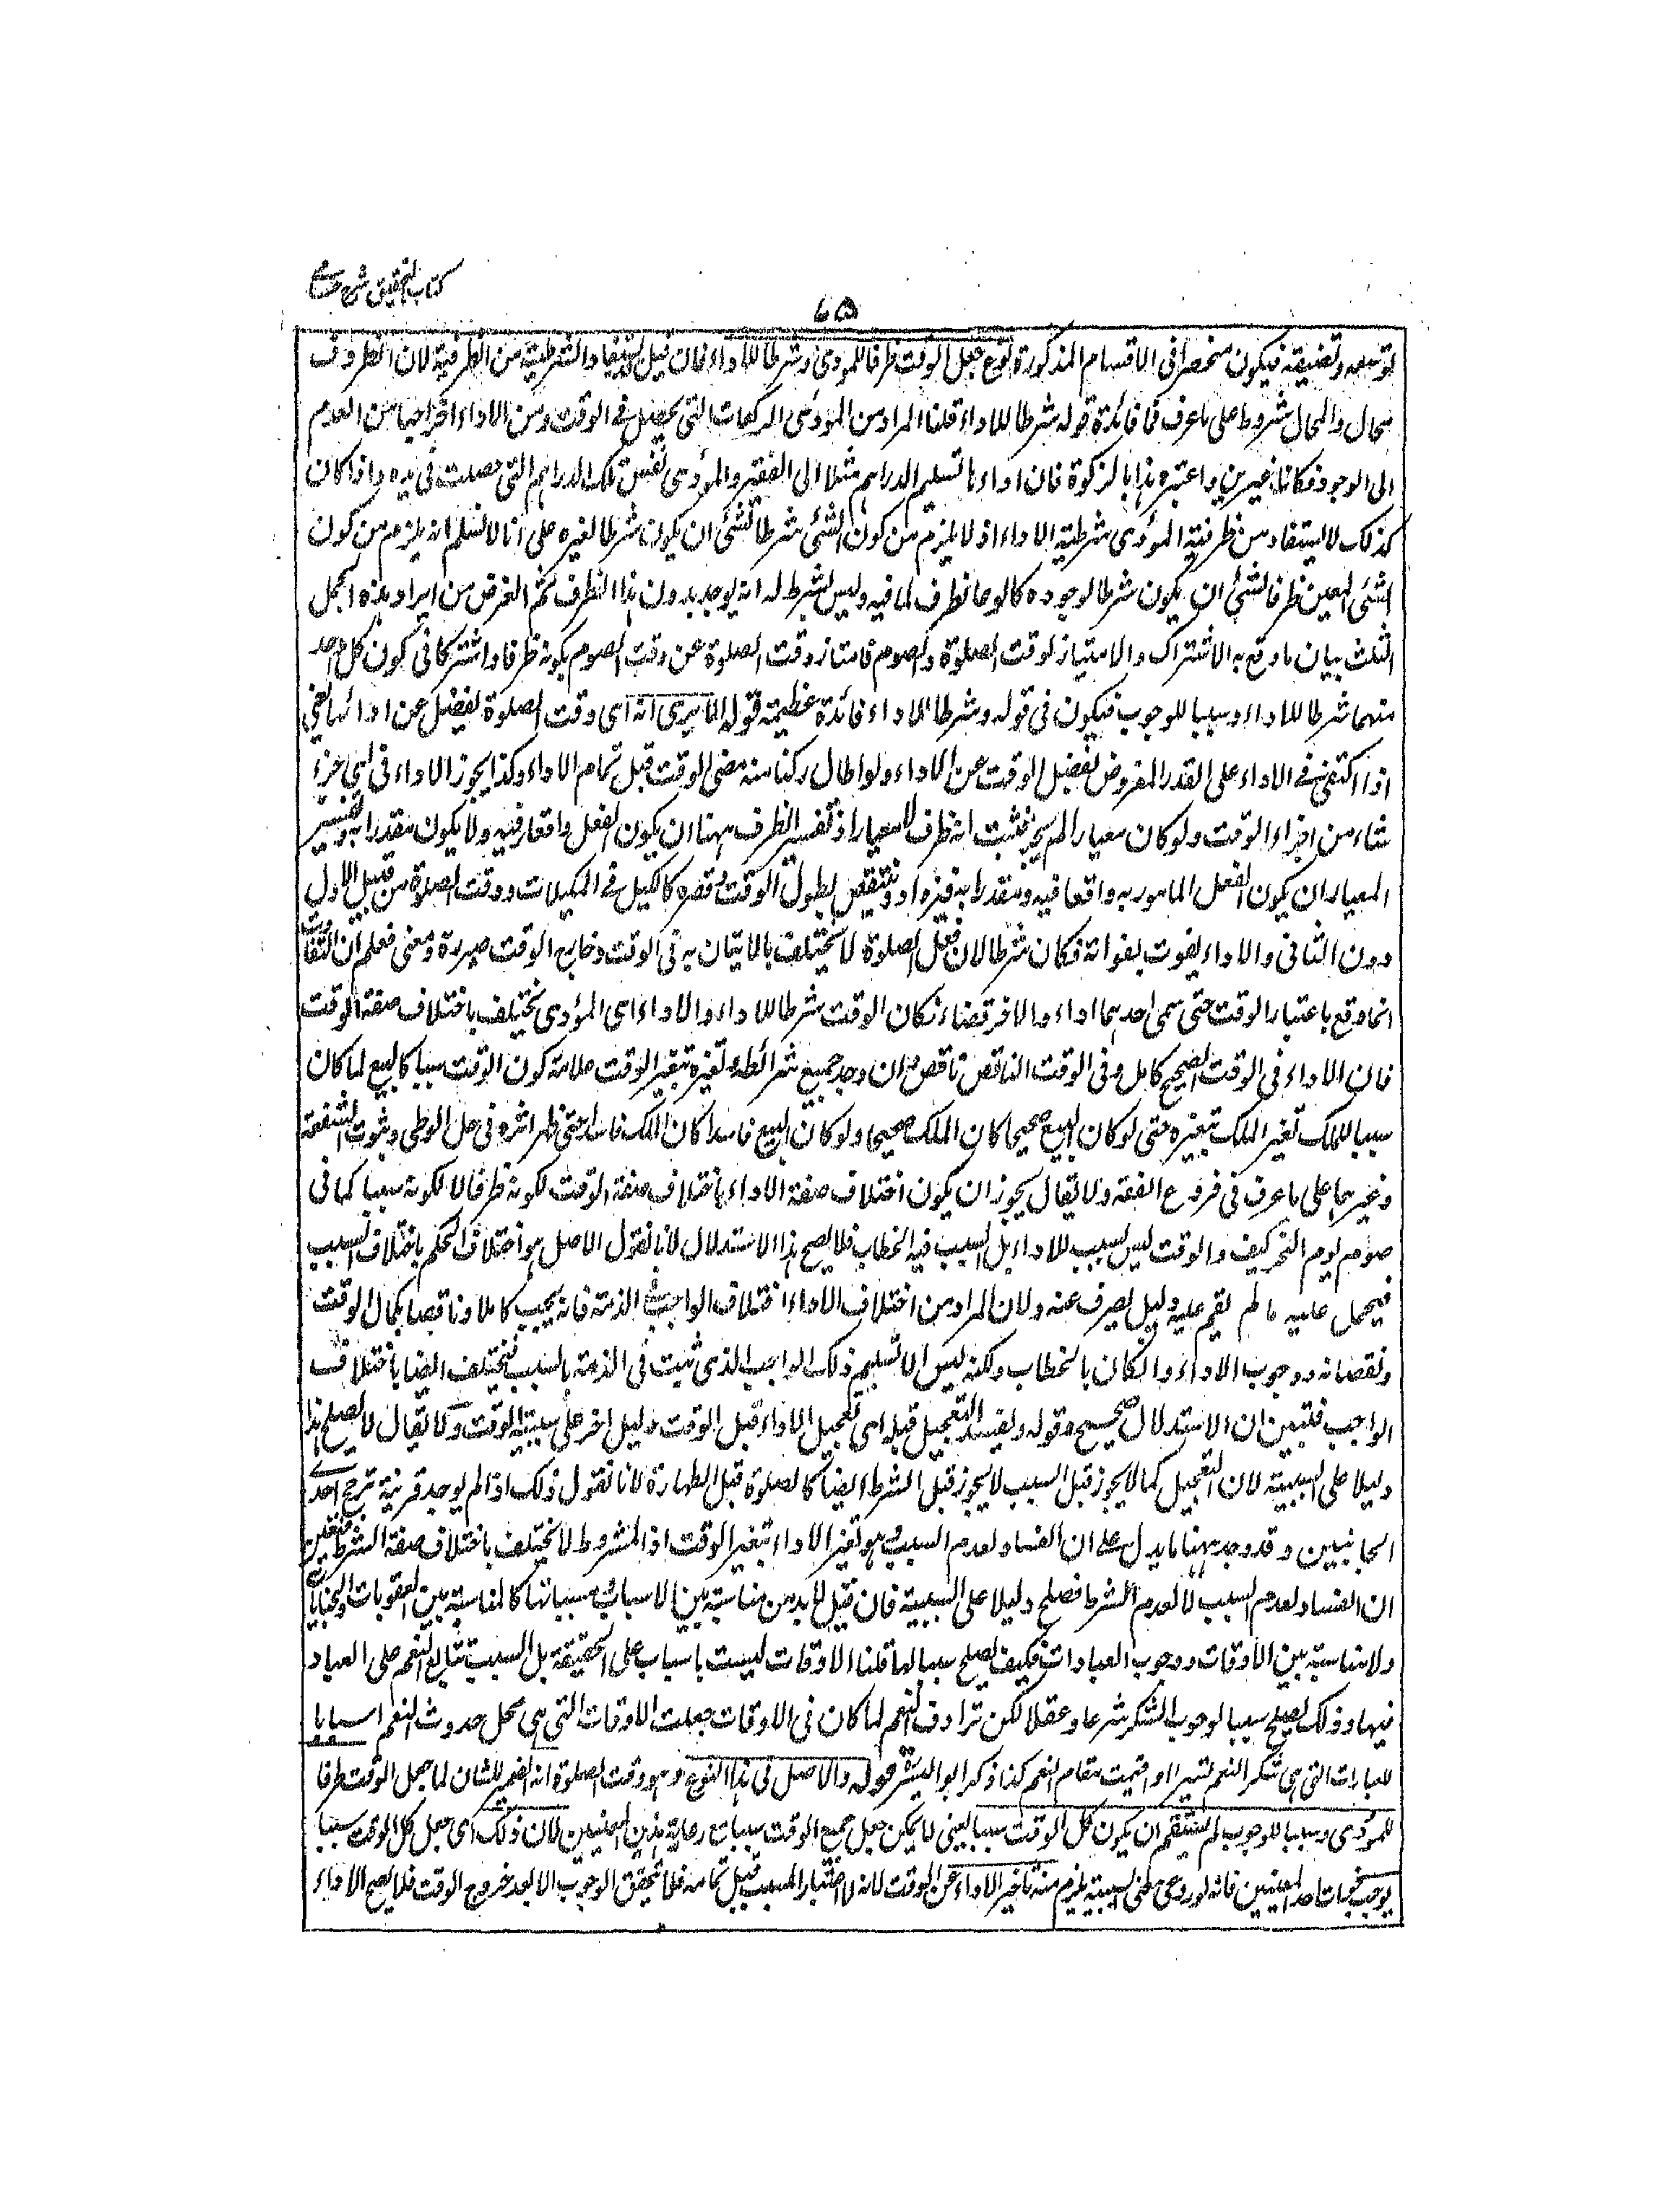 كتاب التحقيق شرح حسامى
٦٥
توسعه وتضيقه فيكون منحصرا فى الاقسام المذكورة نوع جعل الوقت ظرفا للمودى وشرطا للاداء فان قيل استفاد الشرطية من الظرفية لان الظروف
محال والمحال شروط على ما عرف فما فائدة قوله شرطا للاداء قلنا المراد من المودى الركعات التى يحصل فى الوقت ومن الاداء اخراجها من العدم
الى الوجود فكانا غيرين واعتبر هذا بالزكوة فان اداءها تسليم الدراهم مثلا الى الفقير والمؤدى نفس تلك الدراهم التى حصلت فى يده واذا كان
كذلك لا ليستفاد من ظرفية المؤدى شرطية الاداء اذ لا يلزم من كون الشئ شرطا لشئ ان يكون شرطا لغيره على انا لا نسلم انه يلزم من كون
الشئ المعين ظرفا لشئ ان يكون شرطا لوجوده كالوعاء ظرف لما فيه وليس بشرط له انه يوجد بدون هذا الظرف ثم الغرض من ايراد هذه الجمل
الثلث بيان ما وقع به الاشتراك والامتياز لوقت الصلوة والصوم فامتاز وقت الصلوة عن وقت الصوم بكونه ظرفا واشتركا فى كون كل واحد
منهما شرطا للاداء وسببا للوجوب فيكون فى قوله وشرطا للاداء فائدة عظيمة قوله الا يرى انه اى وقت الصلوة يفضل عن ادائها يعنى
اذا اكتفى فى الاداء على القدر المفروض يفضل الوقت عن الاداء ولو اطال ركنا منه مضى الوقت قبل تمام الاداء وكذا يجوز الاداء فى اى جزء
شاء من اجزاء الوقت ولو كان معيارا لم يجز فثبت انه ظرف لا معيار اذ تفسير الظرف ههنا ان يكون الفعل واقعا فيه ولا يكون مقدرا به وتفسير
المعيار ان يكون الفعل المامور به واقعا فيه ومقدرا به فيزداد وينتقص بطول الوقت وقصره كالكيل فى المكيلات ووقت الصلوة من قبيل الاول
دون الثانى والاداء يفوت بفواته فكان شرطا لان فعل الصلوة لا يختلف بالاتيان به فى الوقت وخارج الوقت صورة ومعنى فعلم ان التفاوت
انما وقع باعتبار الوقت حتى سمى احدهما اداء والاخر قضاء فكان الوقت شرطا للاداء والاداء اى المؤدى يختلف باختلاف صفة الوقت
فان الاداء فى الوقت الصحيح كامل وفى الوقت الناقص ناقص وان وجد جميع شرائطه وتغيره بتغير الوقت علامة كون الوقت سببا كالبيع لما كان
سببا للملك تغير الملك بتغيره حتى لو كان البيع صحيحا كان الملك صحيحا ولو كان البيع فاسدا كان الملك فاسدا حتى ظهر اثره فى حل الوطى وثبوت الشفعة
وغيرهما على ما عرف فى فروع الفقه ولا يقال يجوز ان يكون اختلاف صفة الاداء باختلاف صفة الوقت لكونه ظرفا لا لكونه سببا كما فى
صوم يوم النحر كيف والوقت ليس بسبب للاداء بل السبب فيه الخطاب فلا يصح هذا الاستدلال لانا نقول الاصل هو اختلاف الحكم باختلاف السبب
فيحمل عليه ما لم يقم عليه دليل يصرف عنه ولان المراد من اختلاف الاداء اختلاف الواجب فى الذمة فانه يجب كاملا وناقصا بكمال الوقت
ونقصانه ووجوب الاداء وان كان بالخطاب ولكنه ليس الا تسليم ذلك الواجب الذى ثبت فى الذمة بالسبب فيختلف ايضا باختلاف
الواجب فتبين ان الاستدلال صحيح وقوله ويفسد التعجيل قبله اى تعجيل الاداء قبل الوقت دليل اخر على سببية الوقت ولا يقال لا يصلح هذا
دليلا على السببية لان التعجيل كما لا يجوز قبل السبب لا يجوز قبل الشرط ايضا كالصلوة قبل الطهارة لانا نقول ذلك اذا لم يوجد قرينة ترجح احد
الجانبين وقد وجد ههنا ما يدل على ان الفساد لعدم السبب وهو تغير الاداء بتغير الوقت اذ المشروط لا يختلف باختلاف صفة الشرط فتعين
ان الفساد لعدم السبب لا لعدم الشرط فصلح دليلا على السببية فان قيل لا بد من مناسبة بين الاسباب ومسبباتها كالمناسبة بين العقوبات والجنايات
ولا مناسبة بين الاوقات ووجوب العبادات فكيف يصلح سببا لها قلنا الاوقات ليست باسباب على الحقيقة بل السبب تتابع النعم على العباد
فيها وذلك يصلح سببا لوجوب الشكر شرعا وعقلا لكن ترادف النعم لما كان فى الاوقات جعلت الاوقات التى هى محل حدوث النعم اسبابا
للعبادات التى هى شكر النعم تيسيرا واقيمت مقام النعم كذا ذكر ابو اليسر قوله والاصل فى هذا النوع وهو وقت الصلوة انه الضمير للشان لما جعل الوقت ظرفا
للمؤدى وسببا للوجوب لم يستقم ان يكون كل الوقت سببا يعنى لا يمكن جعل جميع الوقت سببا مع رعاية هذين المعنيين لان ذلك اى جعل كل الوقت سببا
يوجب احد المعنيين فانه لو روعى معنى السببية يلزم منه تاخير الاداء عن الوقت لانه لا اعتبار للسبب قبل تمامه فلا يتحقق الوجوب الا بعد خروج الوقت فلا يصح الاداء